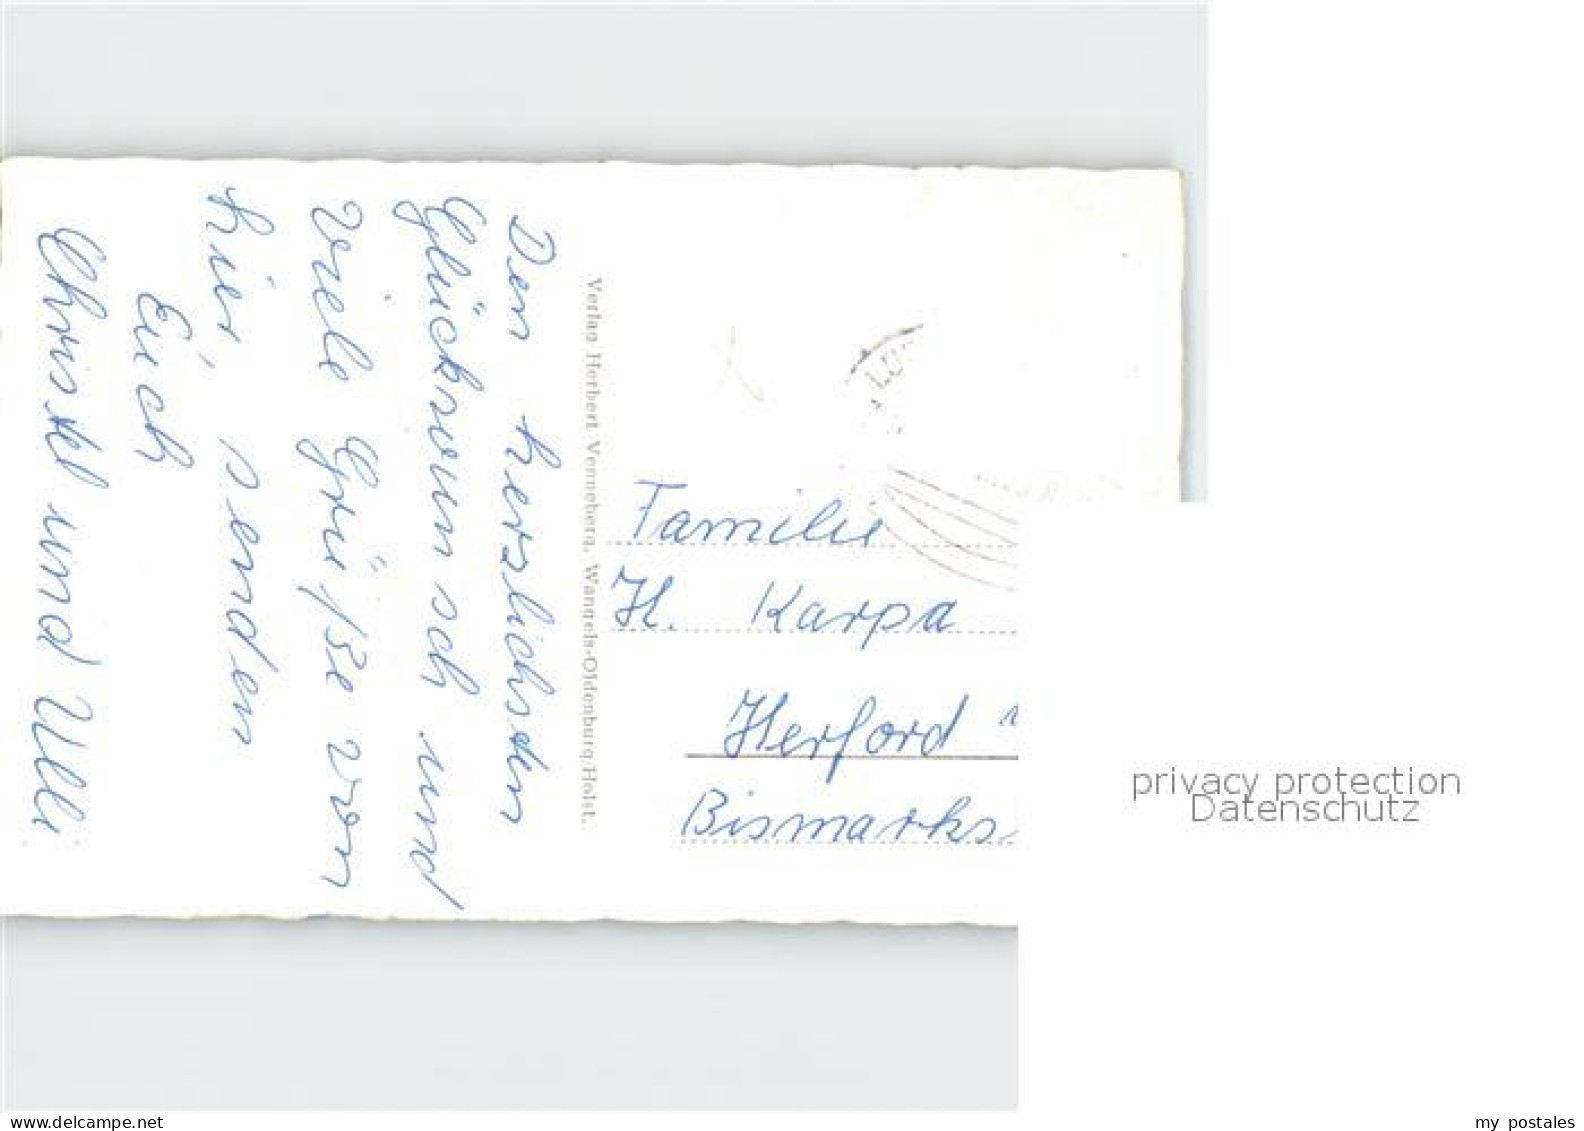 Den herzlichsden
Glückwunsch und
viele Grüße von
hier, senden
Euch
Christel und Ulli
Verlag Herbert Venneberg, Wangels-Oldenburg/Holst.
Familie
H. Karpa
Herford
Bismarks
privacy protection
Datenschutz
my postales